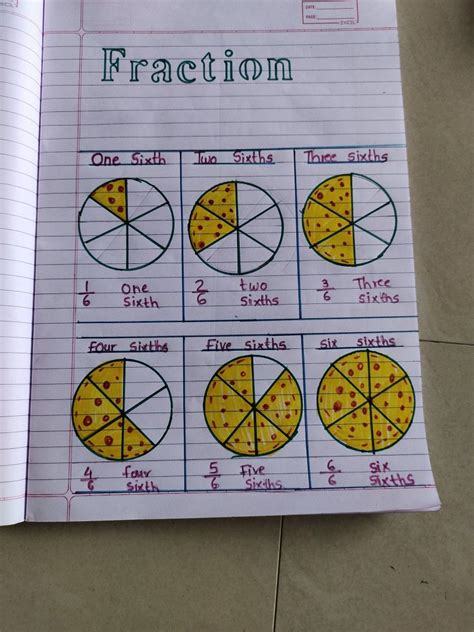 DATE:
PAGE:
Fraction
One Sixth
Two Sixths
Three Sixths
1/6 One
Sixth
2/6 two
Sixths
3/6 Three
sixths
four sixths
Five sixths
six sixths
4/6 four
sixth
5/6 Five
Sixths
6/6 six
sixths